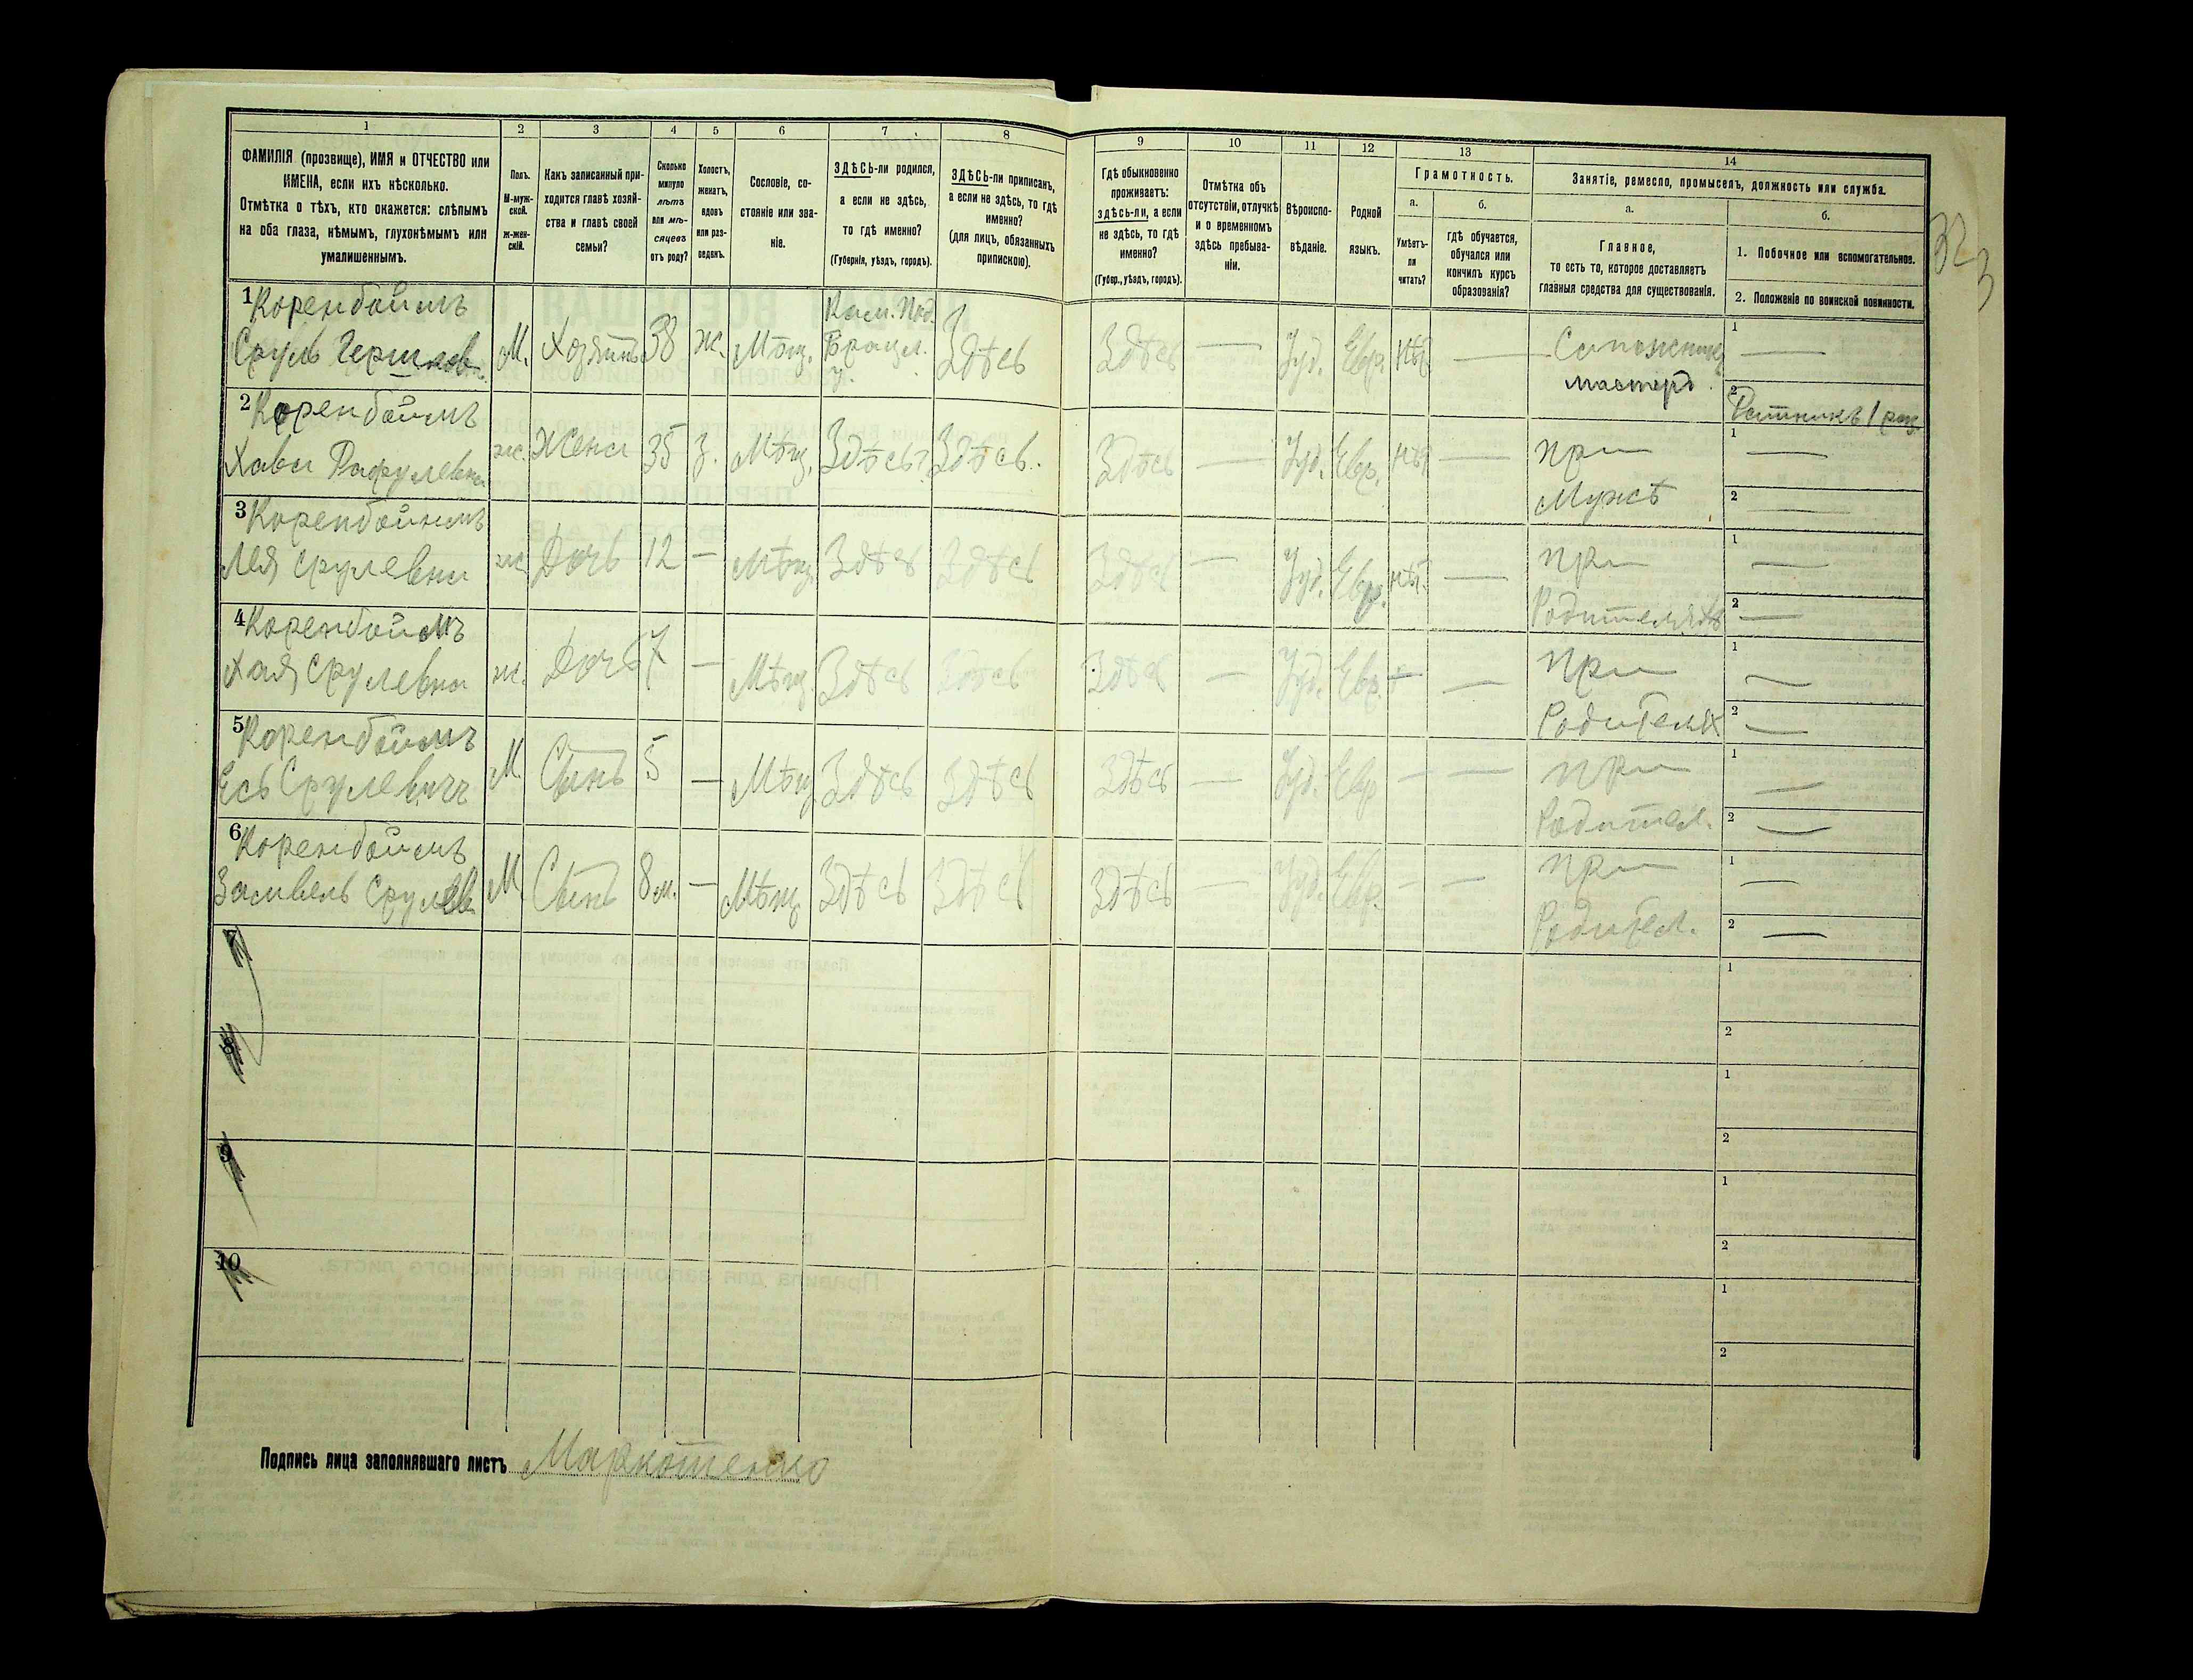 1 2 3 4 5 6 7 8 9 10 11 12 13 14
ФАМИЛІЯ (прозвище), ИМЯ и ОТЧЕСТВО или
ИМЕНА, если ихъ нѣсколько.
Отмѣтка о тѣхъ, кто окажется: слѣпымъ
на оба глаза, нѣмымъ, глухонѣмымъ или
умалишеннымъ.
Полъ.
М-муж-
ской.
Ж-жен-
скій.
Какъ записанный при-
ходится главѣ хозяй-
ства и главѣ своей
семьи?
Сколько
минуло
лѣтъ
или мѣ-
сяцевъ
отъ роду?
Холостъ,
женатъ,
вдовъ
или раз-
веденъ.
Сословіе, со-
стояніе или зва-
ніе.
ЗДѢСЬ-ли родился,
а если не здѣсь,
то гдѣ именно?
(Губернія, уѣздъ, городъ).
ЗДѢСЬ-ли приписанъ,
а если не здѣсь, то гдѣ
именно?
(для лицъ, обязанныхъ
припискою).
Гдѣ обыкновенно
проживаетъ:
здѣсь-ли, а если
не здѣсь, то гдѣ
именно?
(Губер., уѣздъ, городъ).
Отмѣтка объ
отсутствіи, отлучкѣ
и о временномъ
здѣсь пребыва-
ніи.
Вѣроиспо-
вѣданіе.
Родной
языкъ.
Грамотность.
а.
Умѣетъ-
ли
читать?
б.
гдѣ обучается,
обучался или
кончилъ курсъ
образованія?
Занятіе, ремесло, промыселъ, должность или служба.
а.
Главное,
то есть то, которое доставляетъ
главныя средства для существованія.
б.
1. Побочное или вспомогательное.
2. Положеніе по воинской повинности.
1 Коренбоймъ
Сруль Гершков.
М. Хозяинъ 38 ж. Мѣщ.
Кам. Под.
Брацл.
у.
Здѣсь Здѣсь — Іуд. Евр. нѣт —
Сапожникъ
мастеръ
1 —
2 Ратникъ 1 раз.
2 Коренбоймъ
Хава Рафулевна
ж. Жена 35 з. Мѣщ. Здѣсь Здѣсь. Здѣсь — Іуд. Евр. нѣт —
при
Мужѣ
1 —
2 —
3 Коренбоймъ
Лея Срулевна
ж. Дочь 12 — Мѣщ. Здѣсь Здѣсь Здѣсь — Іуд. Евр. нѣт. —
при
Родителяхъ
1 —
2 —
4 Коренбоймъ
Хая Срулевна
ж. Дочь 7 — Мѣщ. Здѣсь Здѣсь Здѣсь — Іуд. Евр. — —
при
Родителях
1 —
2 —
5 Коренбоймъ
Есь Срулевич
М. Сынъ 5 — Мѣщ. Здѣсь Здѣсь Здѣсь — Іуд. Евр — —
при
Родител.
1 —
2 —
6 Коренбоймъ
Замвель Срулев
М. Сынъ 8 м. — Мѣщ. Здѣсь Здѣсь Здѣсь — Іуд. Евр. — —
при
Родител.
1 —
2 —
7
1
2
8
1
2
9
1
2
10
1
2
Подпись лица заполнявшаго листъ Маркотенко